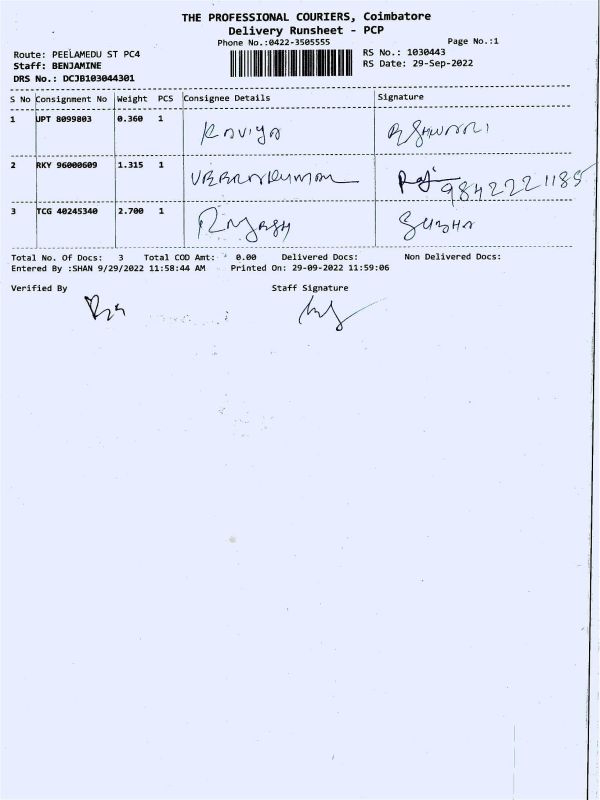 THE PROFESSIONAL COURIERS, Coimbatore
Delivery Runsheet - PCP
Phone No.:0422-3505555
Page No.:1
Route: PEELAMEDU ST PC4
RS No.: 1030443
Staff: BENJAMINE
RS Date: 29-Sep-2022
DRS No.: DCJB103044301
S No Consignment No Weight PCS Consignee Details Signature
1 UPT 8099803 0.360 1 KAVIYA
2 RKY 96000609 1.315 1 9842221185
3 TCG 40245340 2.700 1
Total No. Of Docs: 3 Total COD Amt: 0.00 Delivered Docs: Non Delivered Docs:
Entered By :SHAN 9/29/2022 11:58:44 AM Printed On: 29-09-2022 11:59:06
Verified By Staff Signature